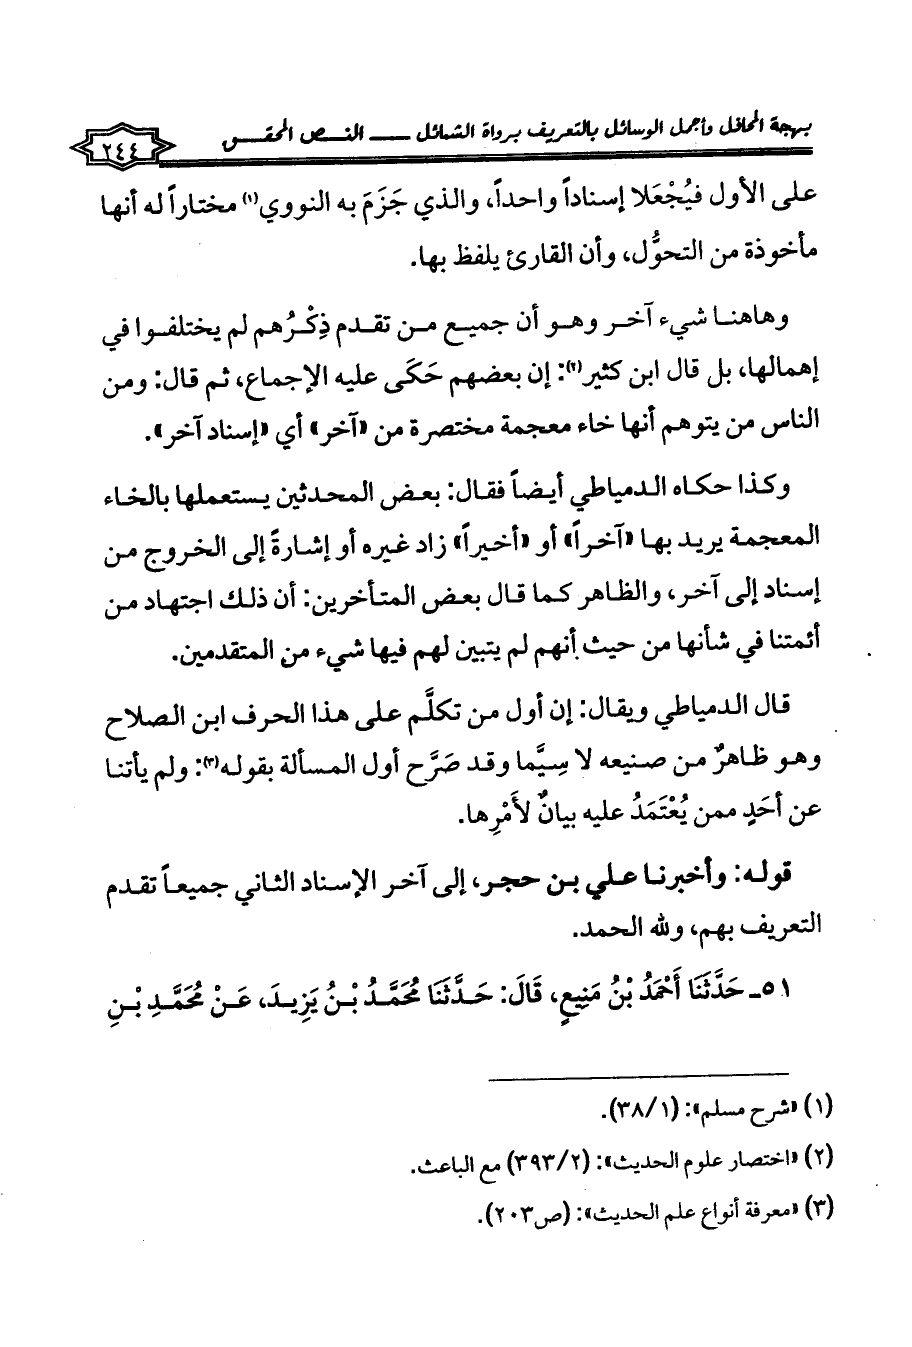 بهجة المحافل وأجمل الوسائل بالتعريف برواة الشمائل ـــ النص المحقق
٢٤٤
على الأول فيُجْعَلا إسناداً واحداً، والذي جَزَمَ به النووي(١) مختاراً له أنها
مأخوذة من التحوُّل، وأن القارئ يلفظ بها.
وهاهنا شيء آخر وهو أن جميع من تقدم ذِكْرُهم لم يختلفوا في
إهمالها، بل قال ابن كثير(٢): إن بعضهم حَكَى عليه الإجماع، ثم قال: ومن
الناس من يتوهم أنها خاء معجمة مختصرة من «آخر» أي «إسناد آخر».
وكذا حكاه الدمياطي أيضاً فقال: بعض المحدثين يستعملها بالخاء
المعجمة يريد بها «آخراً» أو «أخيراً» زاد غيره أو إشارةً إلى الخروج من
إسناد إلى آخر، والظاهر كما قال بعض المتأخرين: أن ذلك اجتهاد من
أئمتنا في شأنها من حيث أنهم لم يتبين لهم فيها شيء من المتقدمين.
قال الدمياطي ويقال: إن أول من تكلَّم على هذا الحرف ابن الصلاح
وهو ظاهرٌ من صنيعه لا سِيَّما وقد صَرَّح أول المسألة بقوله(٣): ولم يأتنا
عن أحَدٍ ممن يُعْتَمَدُ عليه بيانٌ لأَمْرِها.
قوله: وأخبرنا علي بن حجر، إلى آخر الإسناد الثاني جميعاً تقدم
التعريف بهم، ولله الحمد.
٥١ـ حَدَّثَنَا أَحْمَدُ بْنُ مَنِيعٍ، قَالَ: حَدَّثَنَا مُحَمَّدُ بْنُ يَزِيدَ، عَنْ مُحَمَّدِ بْنِ
(١) «شرح مسلم»: (٣٨/١).
(٢) «اختصار علوم الحديث»: (٣٩٣/٢) مع الباعث.
(٣) «معرفة أنواع علم الحديث»: (ص٢٠٣).